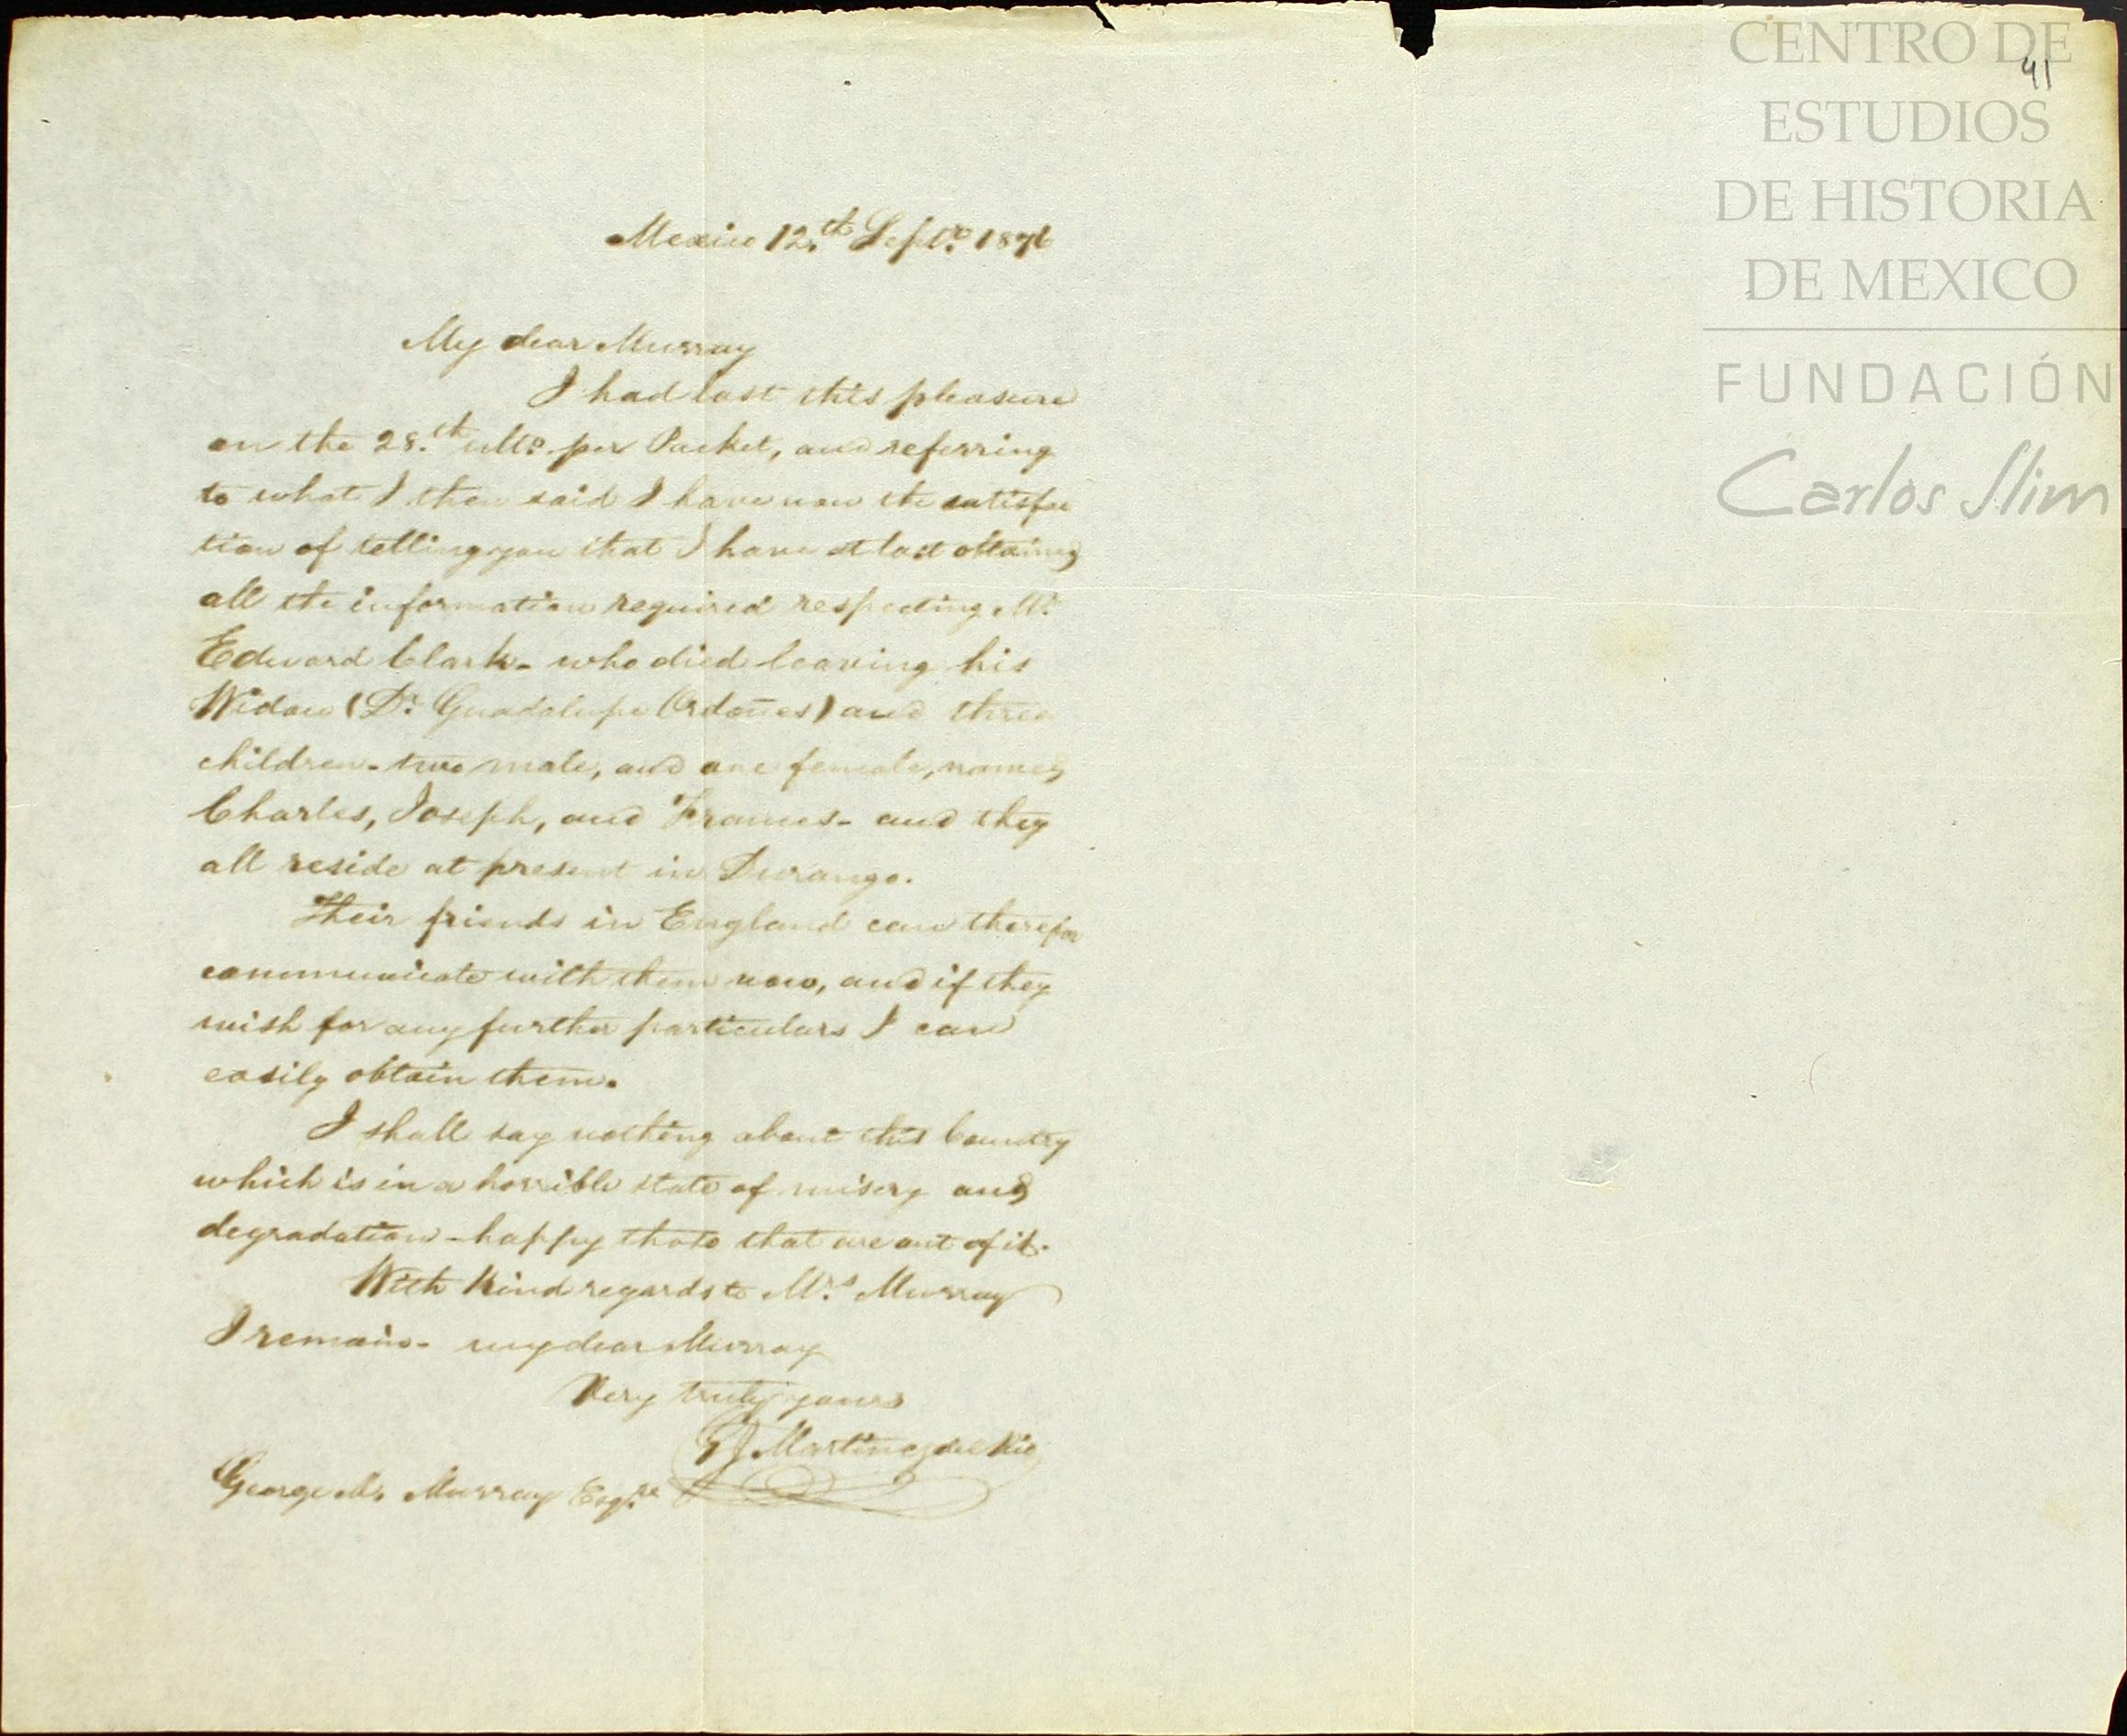 CENTRO DE
ESTUDIOS
DE HISTORIA
DE MEXICO
FUNDACIÓN
Carlos Slim
41
Mexico 12.th Septe. 1876
My dear Murray
I had last this pleasure
on the 28.th ulto. per Packet, and referring
to what I then said I have now the satisfac
tion of telling you that I have at last obtained
all the information required respecting Mr.
Edward Clark - who died leaving his
Widow (Da. Guadalupe Ordoñes) and three
children - two male, and one female, named
Charles, Joseph, and Frances - and they
all reside at present in Durango.
Their friends in England can therefor
communicate with them now, and if they
wish for any further particulars I can
easily obtain them.
I shall say nothing about this Country
which is in a horrible state of misery and
degradation - happy those that are out of it.
With kind regards to Mrs. Murray
I remain - my dear Murray
Very truly yours
Martinez del Rio
George M. Murray Esqre.